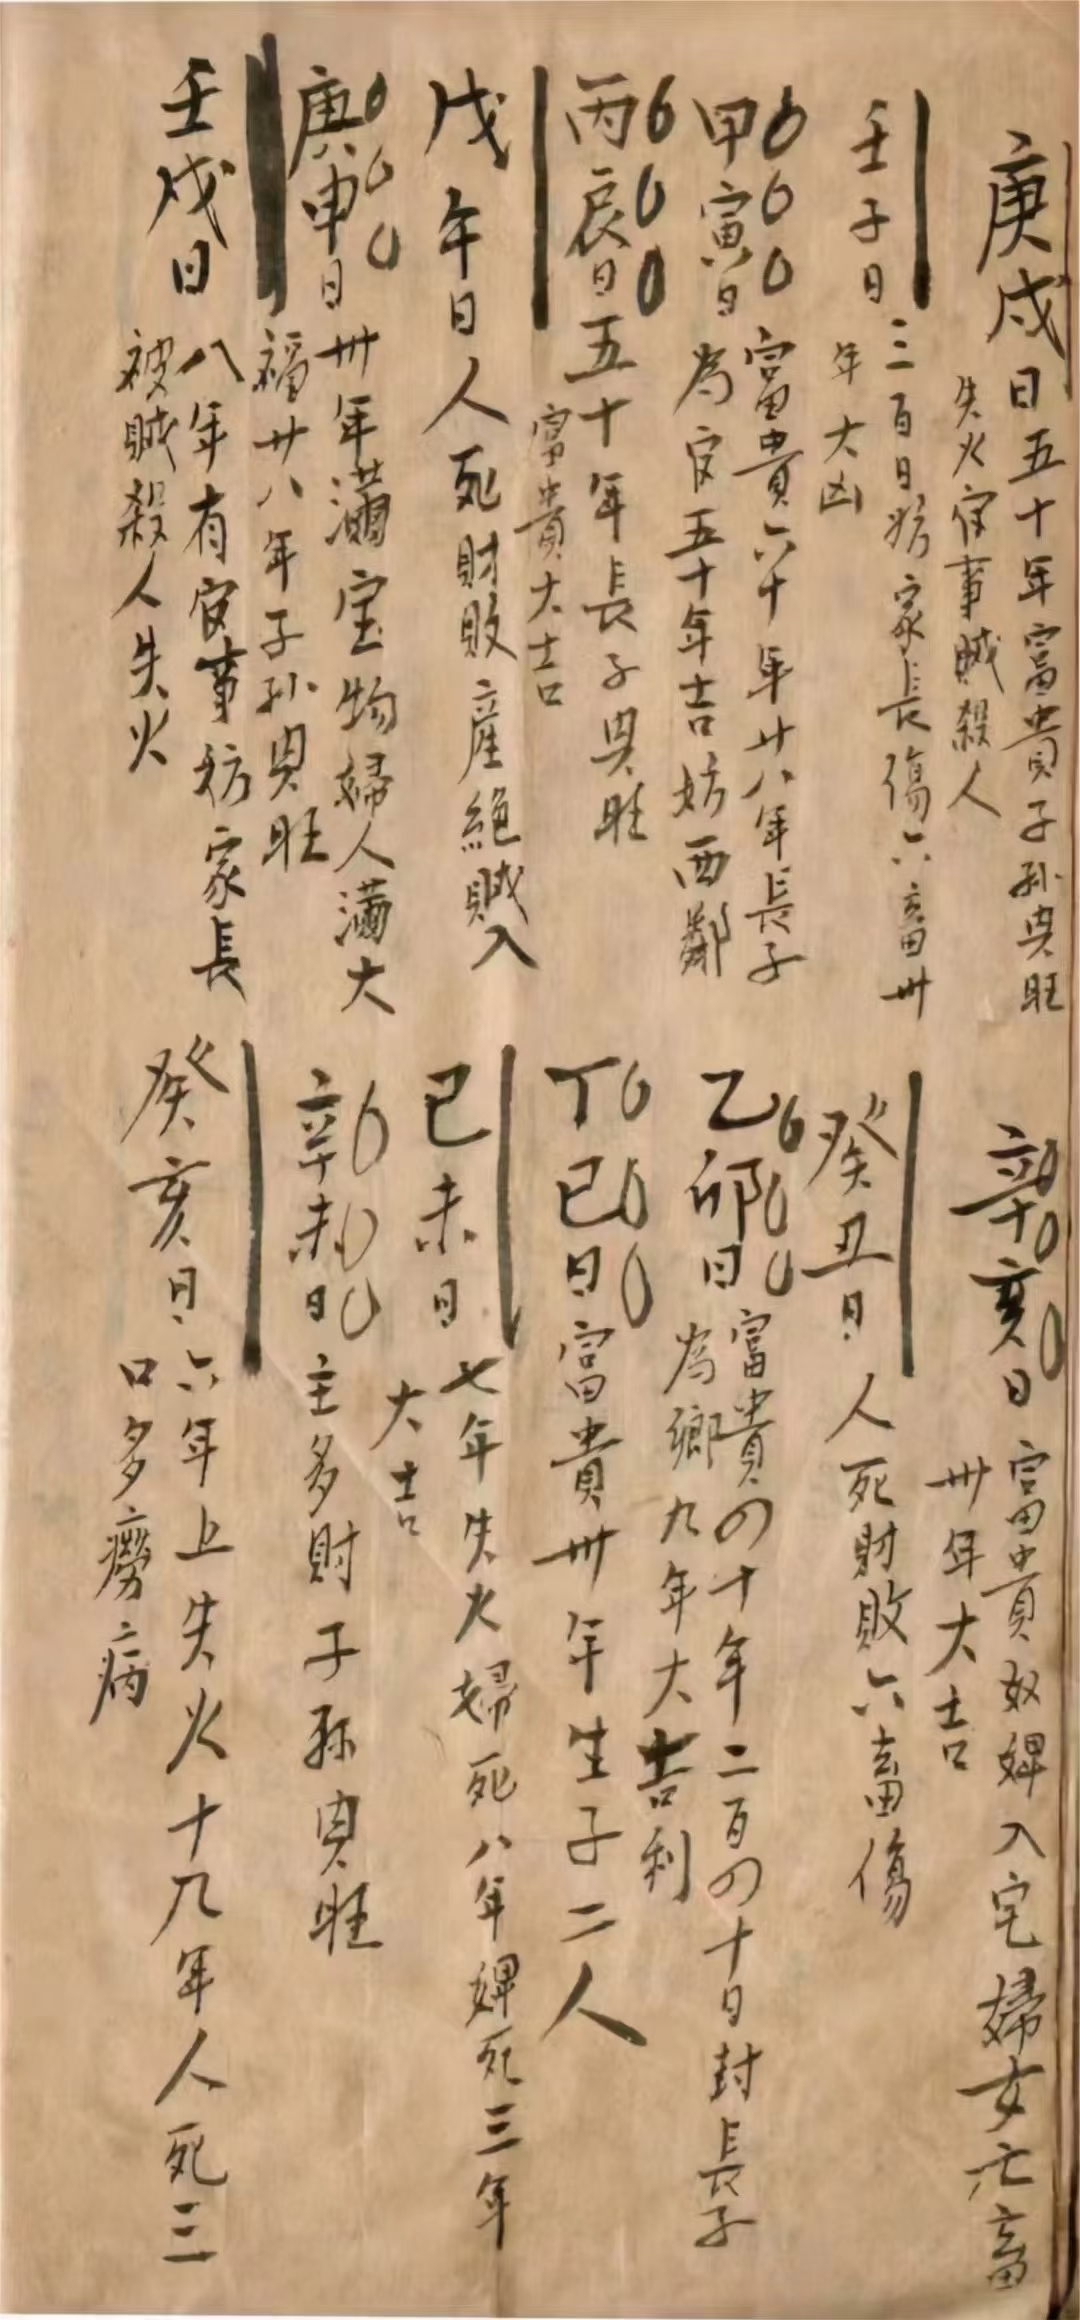 庚戌日五十年富貴子孫興旺
失火官事賊殺人
壬子日三百日妨家長傷六畜卅
年大凶
甲寅日富貴六十年廿八年長子
為官五十年吉妨西鄰
丙辰日五十年長子興旺
富貴大吉
戊午日人死財敗產絕賊入
庚申日卅年滿宝物婦人滿大
福廿八年子孫興旺
壬戌日八年有官事妨家長
被賊殺人失火
辛亥日富貴奴婢入宅婦女亡畜
卅年大吉
癸丑日人死財敗六畜傷
乙卯日富貴四十年二百四十日封長子
為鄉九年大吉利
丁巳日富貴卅年生子二人
己未日七年失火婦死八年婢死三年
大吉
辛未日主多財子孫興旺
癸亥日六年上失火十九年人死三
口多癆病